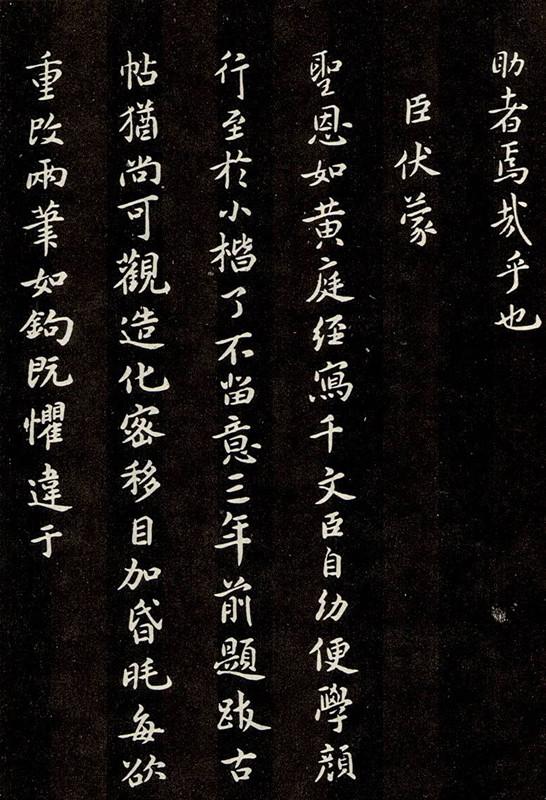 助者焉哉乎也
臣伏蒙
聖恩如黃庭經寫千文臣自幼便學顔
行至於小楷了不留意三年前題跋古
帖猶尚可觀造化密移目加昏眊每欲
重改兩筆如鉤既懼違于